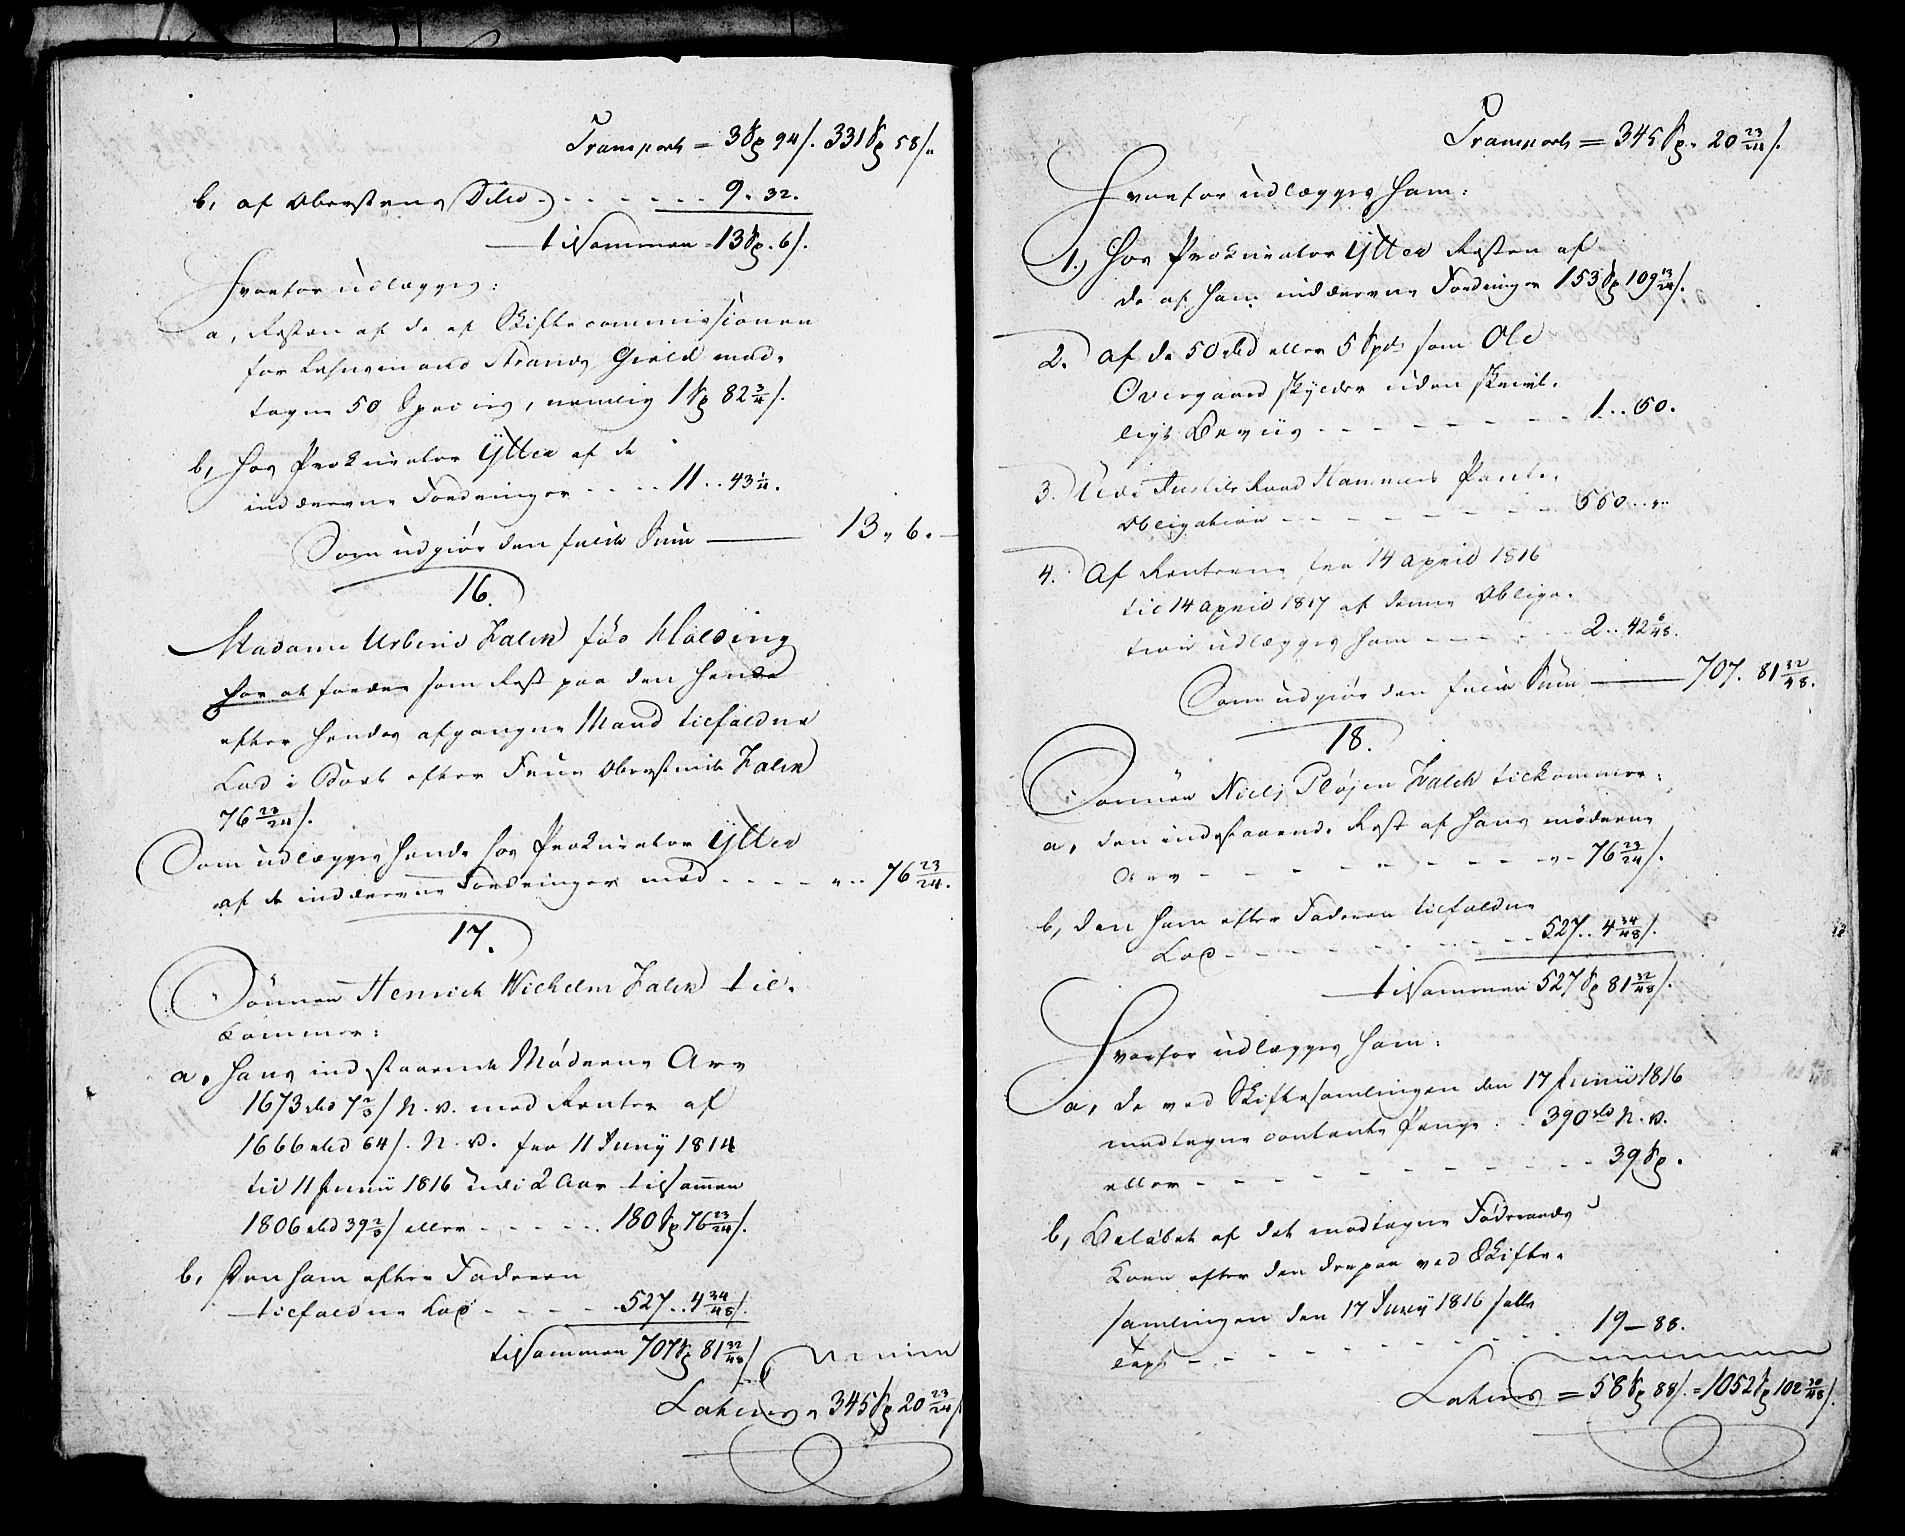 Transport = 3 Sp 94 /. 331 Sp 58 /.
b, af Oberstens Side - - - - - - 9. 32.
tilsammen = 13 Sp. 6 /.
Hvorfor udlægges:
a, Resten af de af Skiftecommissionen
for Lehnsmand Strands Gield mod-
tagne 50 Species, nemlig 1 Sp 82 3/4 /.
b, hos Prokurator Ytter af de
inddrevne Fordringer - - - - 11 .. 43 1/4.
Som udgiør den fulde Sum —— 13 " 6. -
16.
Madame Urbine Falch fød Kolding
har at fordre som Rest paa den hende
efter hendes afgangne Mand tilfaldne
Lod i Boet efter Frue Oberstinde Falch
76 23/24 /.
Som udlægges hende hos Prokurator Ytter
af de inddrevne Fordringer med - - - - " .. 76 23/24.
17.
Sønnen Henrich Wilhelm Falch til-
kommer:
a, hans indestaaende Møderne Arv
1673 rbd 7 2/3 / N. V. med Renter af
1666 rbd 64 /. N. V. fra 11 Juny 1814
til 11 Junii 1816 udi 2 Aar tilsammen
1806 rbd 39 2/3 / eller - - - - - 180 Sp 76 23/24 /.
b, Den ham efter Faderen
tilfaldne Lod - - - - - 527 .. 4 34/48 /.
tilsammen 707 Sp 81 32/48 /
Lateris " 345 Sp 20 23/24 /
Transport = 345 Sp. 20 23/24 /.
Hvorfor udlægges ham:
1., hos Prokurator Ytter Resten af
de af ham inddrevne Fordringer 153 Sp 109 13/24 /.
2. af de 50 rbd eller 5 Spd som Ole
Overgaard skylder uden skrivt-
ligt Beviis - - - - - - - - 1 .. 60.
3. Udi Justits Raad Hammers Pante-
obligation - - - - - - - - 550 .. " ..
4. Af Renterne fra 14 April 1816
til 14 April 1817 af denne Obliga-
tion udlægges ham - - - - - 2 .. 42 6/48.
Som udgiør den fulde Sum —— 707. 81 32/48.
18.
Sønnen Niels Pløjen Falch tilkommer:
a, den indestaaende Rest af hans møderne
Arv - - - - - - - - " - 76 23/24 /.
b, den ham efter Faderen tilfaldne
Lod - - - - - - - - - 527 .. 4 34/48 /.
tilsammen 527 Sp 81 32/48 /.
Hvorfor udlægges ham:
a, de ved Skiftesamlingen den 17 Junii 1816
modtagne contante Penge . . 390 rbd N. V.
eller - - - - - - - - - 39 Sp.
b, Beløbet af det modtagne Føderaads
Korn efter den derpaa ved Skifte-
samlingen den 17 Juny 1816 satte
Taxt - - - - - - - - - 19 — 88.
Lateris = 58 Sp 88 /. = 1052 Sp 102 30/48 /.